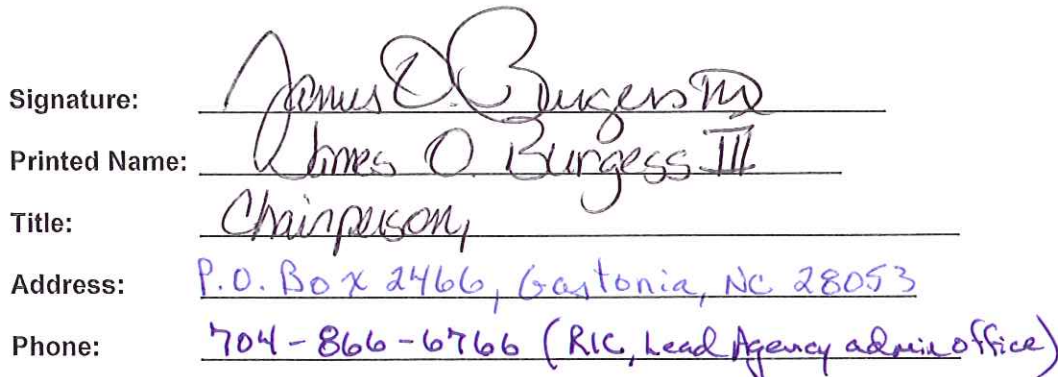 Signature: James O. Burgess III
Printed Name: James O. Burgess III
Title: Chairperson,
Address: P.O. Box 2466, Gastonia, NC 28053
Phone: 704-866-6766 (RIC, Lead Agency admin office)